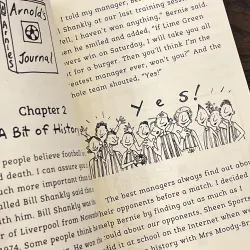 Arnold's
Journal
I told my manager, be
l Shankly at our last training sess
ell, I haven't won anything," Bernie said.
en he smiled and added, "If Lime Green
wers win on Saturday, I will take you all
for a burger. Then you'll think I'm the
eatest manager ever, won't you?" And the
hole team shouted, "Yes!"
yes!
Chapter 2
A Bit of Histor
people believe football
d death. I can assure you
uch more important tha
lled Bill Shankly said this
with him. Bill Shankly wa
r of Liverpool from Novem
974. Some people think he
. He was
The best managers always find out abou
their opponents before a match. I decided
help Bernie by finding out as much as I
could about our opponents, Sheen Sports
did it at school on the Internet when w
history with Mrs Moody-B